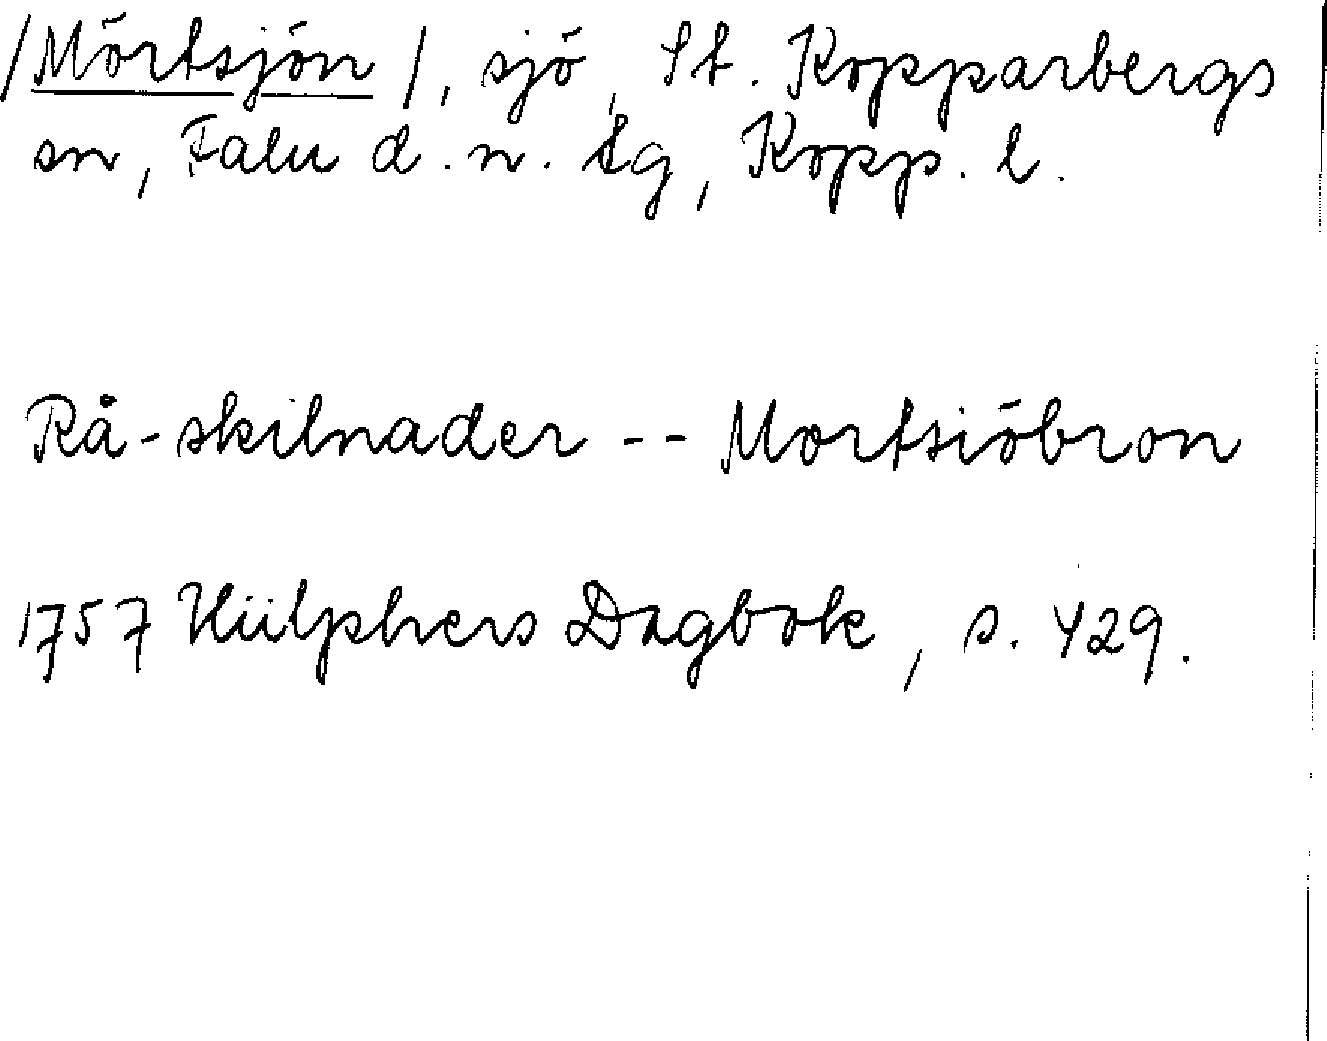 /Mörtsjön/, sjö, St. Kopparbergs
sn, Falu d. n. tg, Kopp. l.
Rå-skilnader -- Mortsiöbron
1757 Hülphers Dagbok, s. 429.